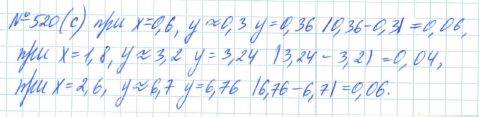 №520(с) при x=0,6, y≈0,3 y=0,36 |0,36-0,3|=0,06,
при x=1,8, y≈3,2 y=3,24 |3,24-3,2|=0,04,
при x=2,6, y≈6,7 y=6,76 |6,76-6,7|=0,06.